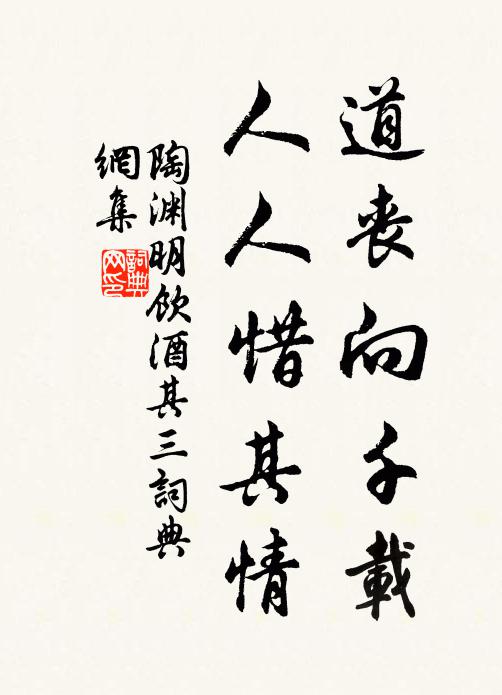 道丧向千載
人人惜其情
陶渊明饮酒其三詞典
網集
詞典
网印